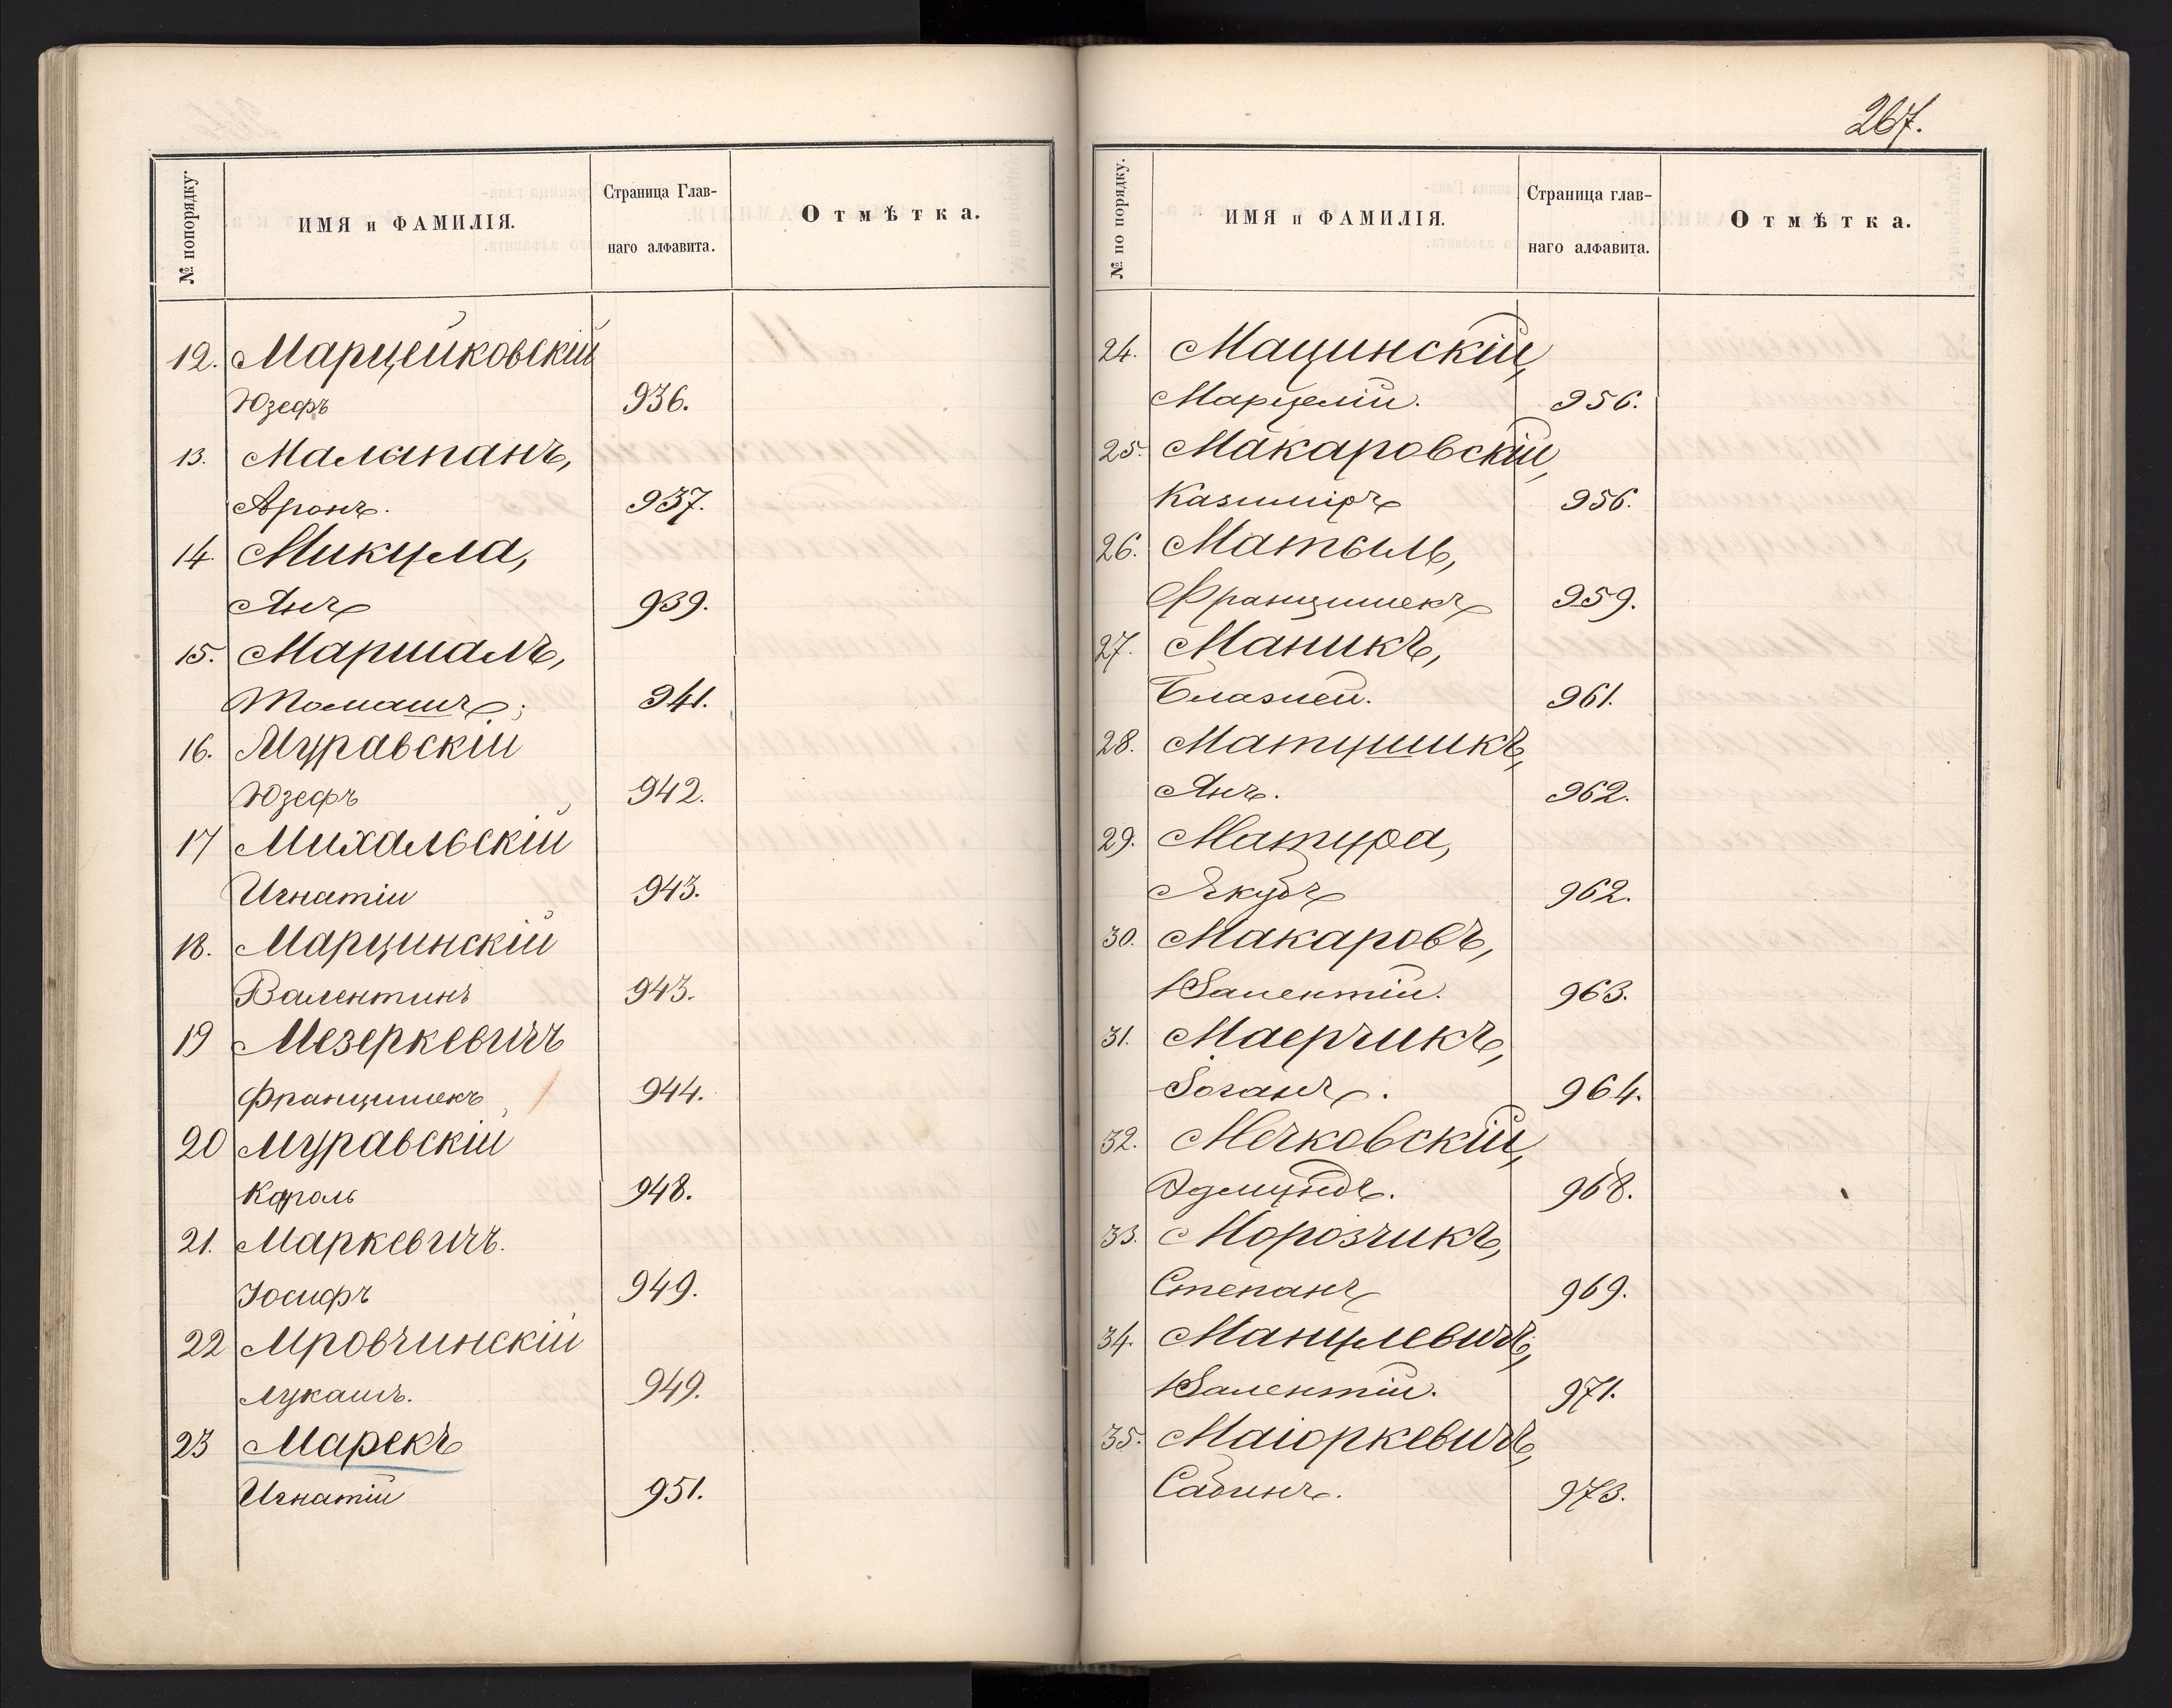 № попорядку.
ИМЯ и ФАМИЛІЯ.
Страница Глав-
наго алфавита.
Отмѣтка.
12. Марцейковскій
Юзефъ 936.
13. Малапанъ,
Аронъ. 937.
14. Микула,
Янъ 939.
15. Маршалъ,
Томашъ; 941.
16. Муравскій
Юзефъ 942.
17 Михальскій
Игнатіи 943.
18. Марцинскій
Валентинъ 943.
19 Мезеркевичъ
Францишекъ 944.
20 Муравскій
Кароль 948.
21. Маркевичъ.
Іосифъ 949.
22 Мровчинскій
Лукашъ. 949.
23 Марекъ
Игнатій 951.
267.
№ по порядку.
ИМЯ и ФАМИЛІЯ.
Страница глав-
наго алфавита.
Отмѣтка.
24. Мацинскій,
Марцелій. 956.
25. Макаровскій,
Казиміръ 956.
26. Матыль,
Францишекъ 959.
27. Маникъ,
Блазней. 961.
28. Матушикъ,
Янъ. 962.
29. Матура,
Якубъ 962.
30. Макаровъ,
Валентій. 963.
31. Маерчикъ,
Іоганъ. 964.
32. Мечковскій,
Эдмундъ. 968.
33. Морозчикъ,
Степанъ 969.
34. Манулевичъ,
Валентій. 971.
35. Маіоркевичъ,
Сабинъ. 973.